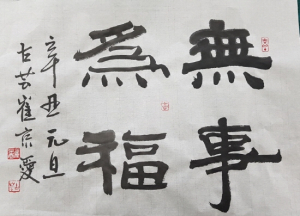 無事
為福
辛丑元旦
古芸崔宗愛